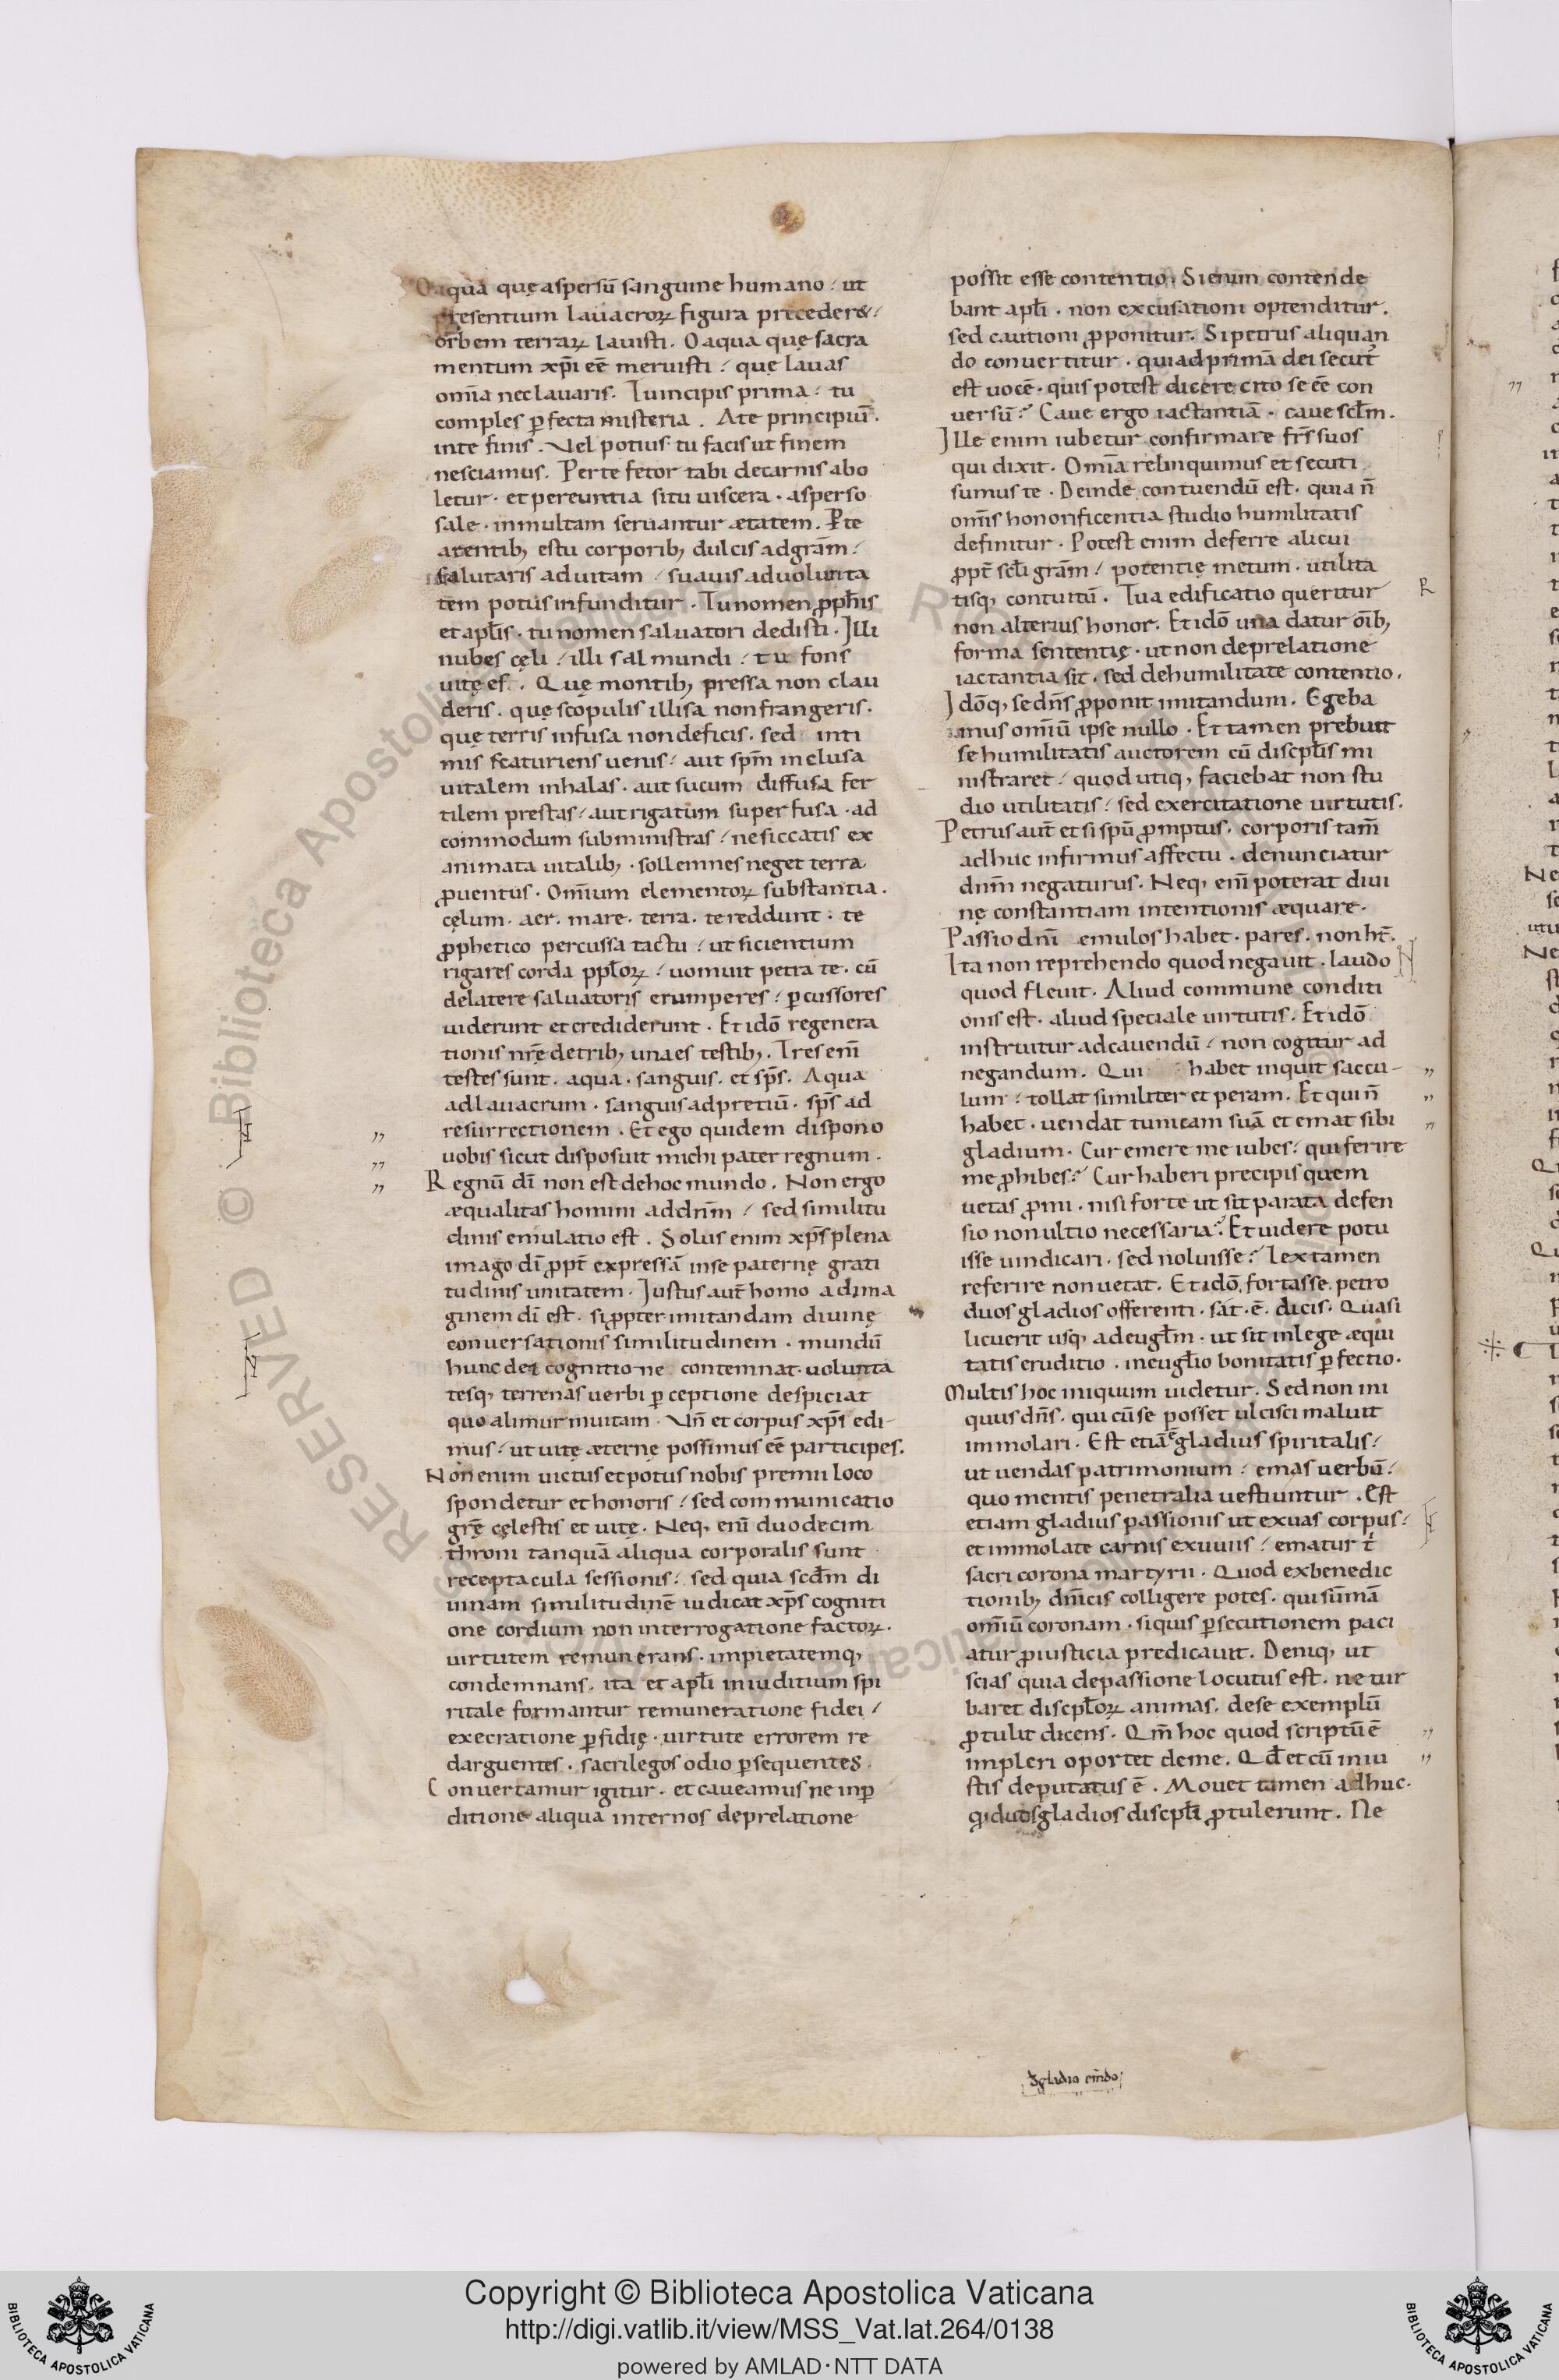 O aqua quę aspersū sanguine humano ut
presentium lauacroꝝ figura precederet
orbem terraꝝ lauisti. O aqua quę sacra
mentum xp̄i eē meruisti quę lauas
om̄ia nec lauaris. Tu incipis prima tu
comples ꝑfecta misteria. A te principiū.
in te finis. Vel potius tu facis ut finem
nesciamus. Per te fetor tabi de carnis abo
letur. et pereuntia situ uiscera. asperso
sale. in multam seruantur ætatem. P̱te
arentib; estu corporib; dulcis ad gr̄am
salutaris ad uitam suauis ad uolunta
tem potus infunditur. Tu nomen ꝓph̄is
et apl̄is. tu nomen saluatori dedisti. Illi
nubes cęli illi sal mundi tu fons
uitę es. Quę montib; pressa non clau
deris. quę scopulis illisa non frangeris.
quę terris infusa non deficis. sed inti
mis scaturiens uenis aut sp̄m inclusa
uitalem inhalas. aut sucum diffusa fer
tilem prestas aut rigatum super fusa. ad
commodum subministras ne siccatis ex
animata uitalib;. sollemnes neget terra
ꝓuentus. Om̄ium elementoꝝ substantia.
cęlum. aer. mare. terra. te reddunt. te
ꝓphetico percussa tactu ut sicientium
rigares corda ppl̄oꝝ uomuit petra te. cū
de latere saluatoris erumperes ꝑcussores
uiderunt et crediderunt. Et idō regenera
tionis nrę̄ de trib; una es testib;. Tres eni̅
testes sunt. aqua. sanguis. et sp̄s. Aqua
ad lauacrum. sanguis ad pretiū. sp̄s ad
resurrectionem. Et ego quidem dispono
uobis sicut disposuit michi pater regnum.
Regnū dī non est de hoc mundo. Non ergo
æqualitas homini ad dn̄m sed similitu
dinis emulatio est. Solus enim xp̄s plena
imago dī ꝓpt̄ expressā in se paternę grati
tudinis unitatem. Iustus aut̄ homo ad ima
ginem dī est. si ꝓpter imitandam diuinę
conuersationis similitudinem. mundū
hunc dei cognitione contemnat. uolunta
tesq; terrenas uerbi ꝑceptione despiciat
quo alimur in uitam. Vn̄ et corpus xp̄i edi-
mus ut uitę æternę possimus eē participes.
Non enim uictus et potus nobis premii loco
spondetur et honoris sed communicatio
grę̄ cęlestis et uitę. Neq; eni̅ duodecim
throni tanquā aliqua corporalis sunt
receptacula sessionis sed quia scd̄m di
uinam similitudinē iudicat xp̄s cogniti
one cordium non interrogatione factoꝝ.
uirtutem remunerans. impietatemq;
condemnans. ita et apl̄i in iuditium spi
ritale formantur remuneratione fidei
execratione ꝑfidię. uirtute errorem re
darguentes. sacrilegos odio ꝑsequentes.
Conuertamur igitur. et caueamus ne in ꝑ
ditione aliqua inter nos de prelatione
possit esse contentio. Si enim contende
bant apl̄i. non excusationi optenditur.
sed cautioni ꝓponitur. Si petrus aliquan
do conuertitur. qui ad primā dei secut᷒
est uocē. quis potest dicere cito se eē con
uersū? Caue ergo iactantiā. caue scl̄m.
Ille enim iubetur confirmare fr̄s suos
qui dixit. Om̄ia relinquimus et secuti
sumus te. Deinde contuendū est. quia n̄
om̄is honorificentia studio humilitatis
definitur. Potest enim deferre alicui
ꝓpt̄ scl̄i gr̄am potentię metum. utilita
tisq; contuitū. Tua edificatio queritur
non alterius honor. Et idō una datur oīb;
forma sententię. ut non de prelatione
iactantia sit. sed de humilitate contentio.
Idōq; se dn̄s ꝓponit imitandum. Egeba
mus om̄iū ipse nullo. Et tamen prebuit
se humilitatis auctorem cū discipl̄is mi
nistraret quod utiq; faciebat non stu
dio utilitatis sed exercitatione uirtutis.
Petrus aut̄ et si spū ꝓmptus. corporis tam̄
adhuc infirmus affectu. denunciatur
dn̄m negaturus. Neq; eni̅ poterat diui
nę constantiam intentionis æquare.
Passio dn̄i emulos habet. pares. non ht̄.
Ita non reprehendo quod negauit. laudo
quod fleuit. Aliud commune conditi
onis est. aliud speciale uirtutis. Et idō
instruitur ad cauendū non cogitur ad
negandum. Qui habet inquit saccu-
lum tollat similiter et peram. Et qui n̄
habet. uendat tunicam suā et emat sibi
gladium. Cur emere me iubes. qui ferire
me ꝓhibes? Cur haberi precipis quem
uetas ꝓmi. nisi forte ut sit parata defen
sio non ultio necessaria? Et uidere potu
isse uindicari. sed noluisse? Lex tamen
referire non uetat. Et idō fortasse petro
duos gladios offerenti. sat. ē. dicis. Quasi
licuerit usq; ad eugl̄m. ut sit in lege æqui
tatis eruditio. in eugl̄io bonitatis ꝑfectio.
Multis hoc iniquum uidetur. Sed non ini
quus dn̄s. qui cū se posset ulcisci maluit
immolari. Est etiā gladius spiritalis
ut uendas patrimonium emas uerbū
quo mentis penetralia uestiuntur. Est
etiam gladius passionis ut exuas corpus
et immolatę carnis exuuiis ematur t᷒
sacri corona martyrii. Quod ex benedic
tionib; dn̄icis colligere potes. qui sūmā
om̄iū coronam. si quis ꝑsecutionem paci
atur ꝓ iusticia predicauit. Deniq; ut
scias quia de passione locutus est. ne tur
baret discipl̄oꝝ animas. de se exemplū
ꝓtulit dicens. Qm̄ hoc quod scriptū ē
impleri oportet de me. Qd̄ et cū iniu
stis deputatus ē. Mouet tamen adhuc.
qđ duos gladios discipl̄i ꝓtulerunt. Ne
Copyright © Biblioteca Apostolica Vaticana
http://digi.vatlib.it/view/MSS_Vat.lat.264/0138
powered by AMLAD·NTT DATA
BIBLIOTECA APOSTOLICA VATICANA
BIBLIOTECA APOSTOLICA VATICANA